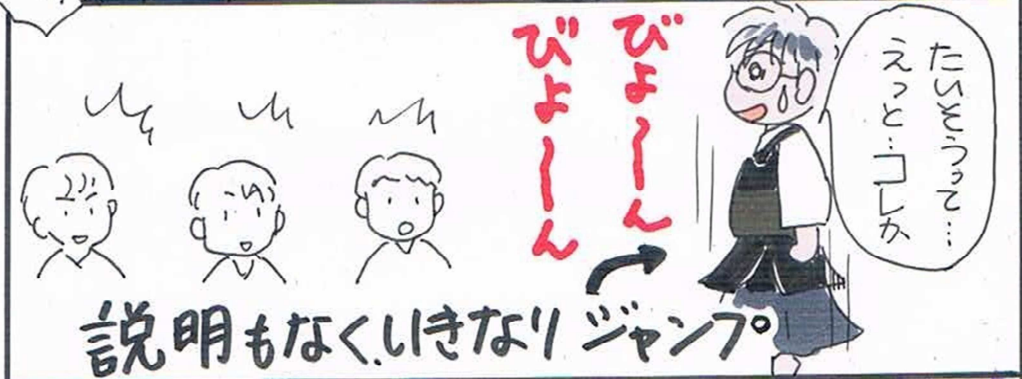 たいそうって…
えっと…コレか
びょ〜〜ん
びょ〜〜ん
説明もなく、いきなりジャンプ